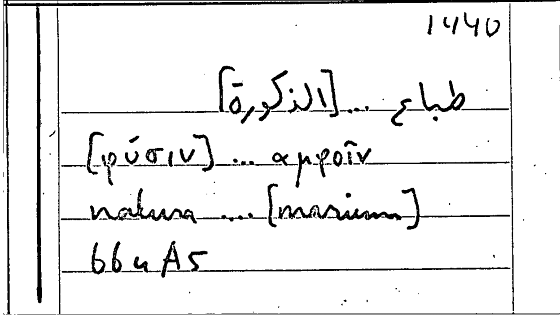 1440
طباع ... [الذكورة]
[φύσιν] ... αμφοῖν
natura .... [marium]
66u A5